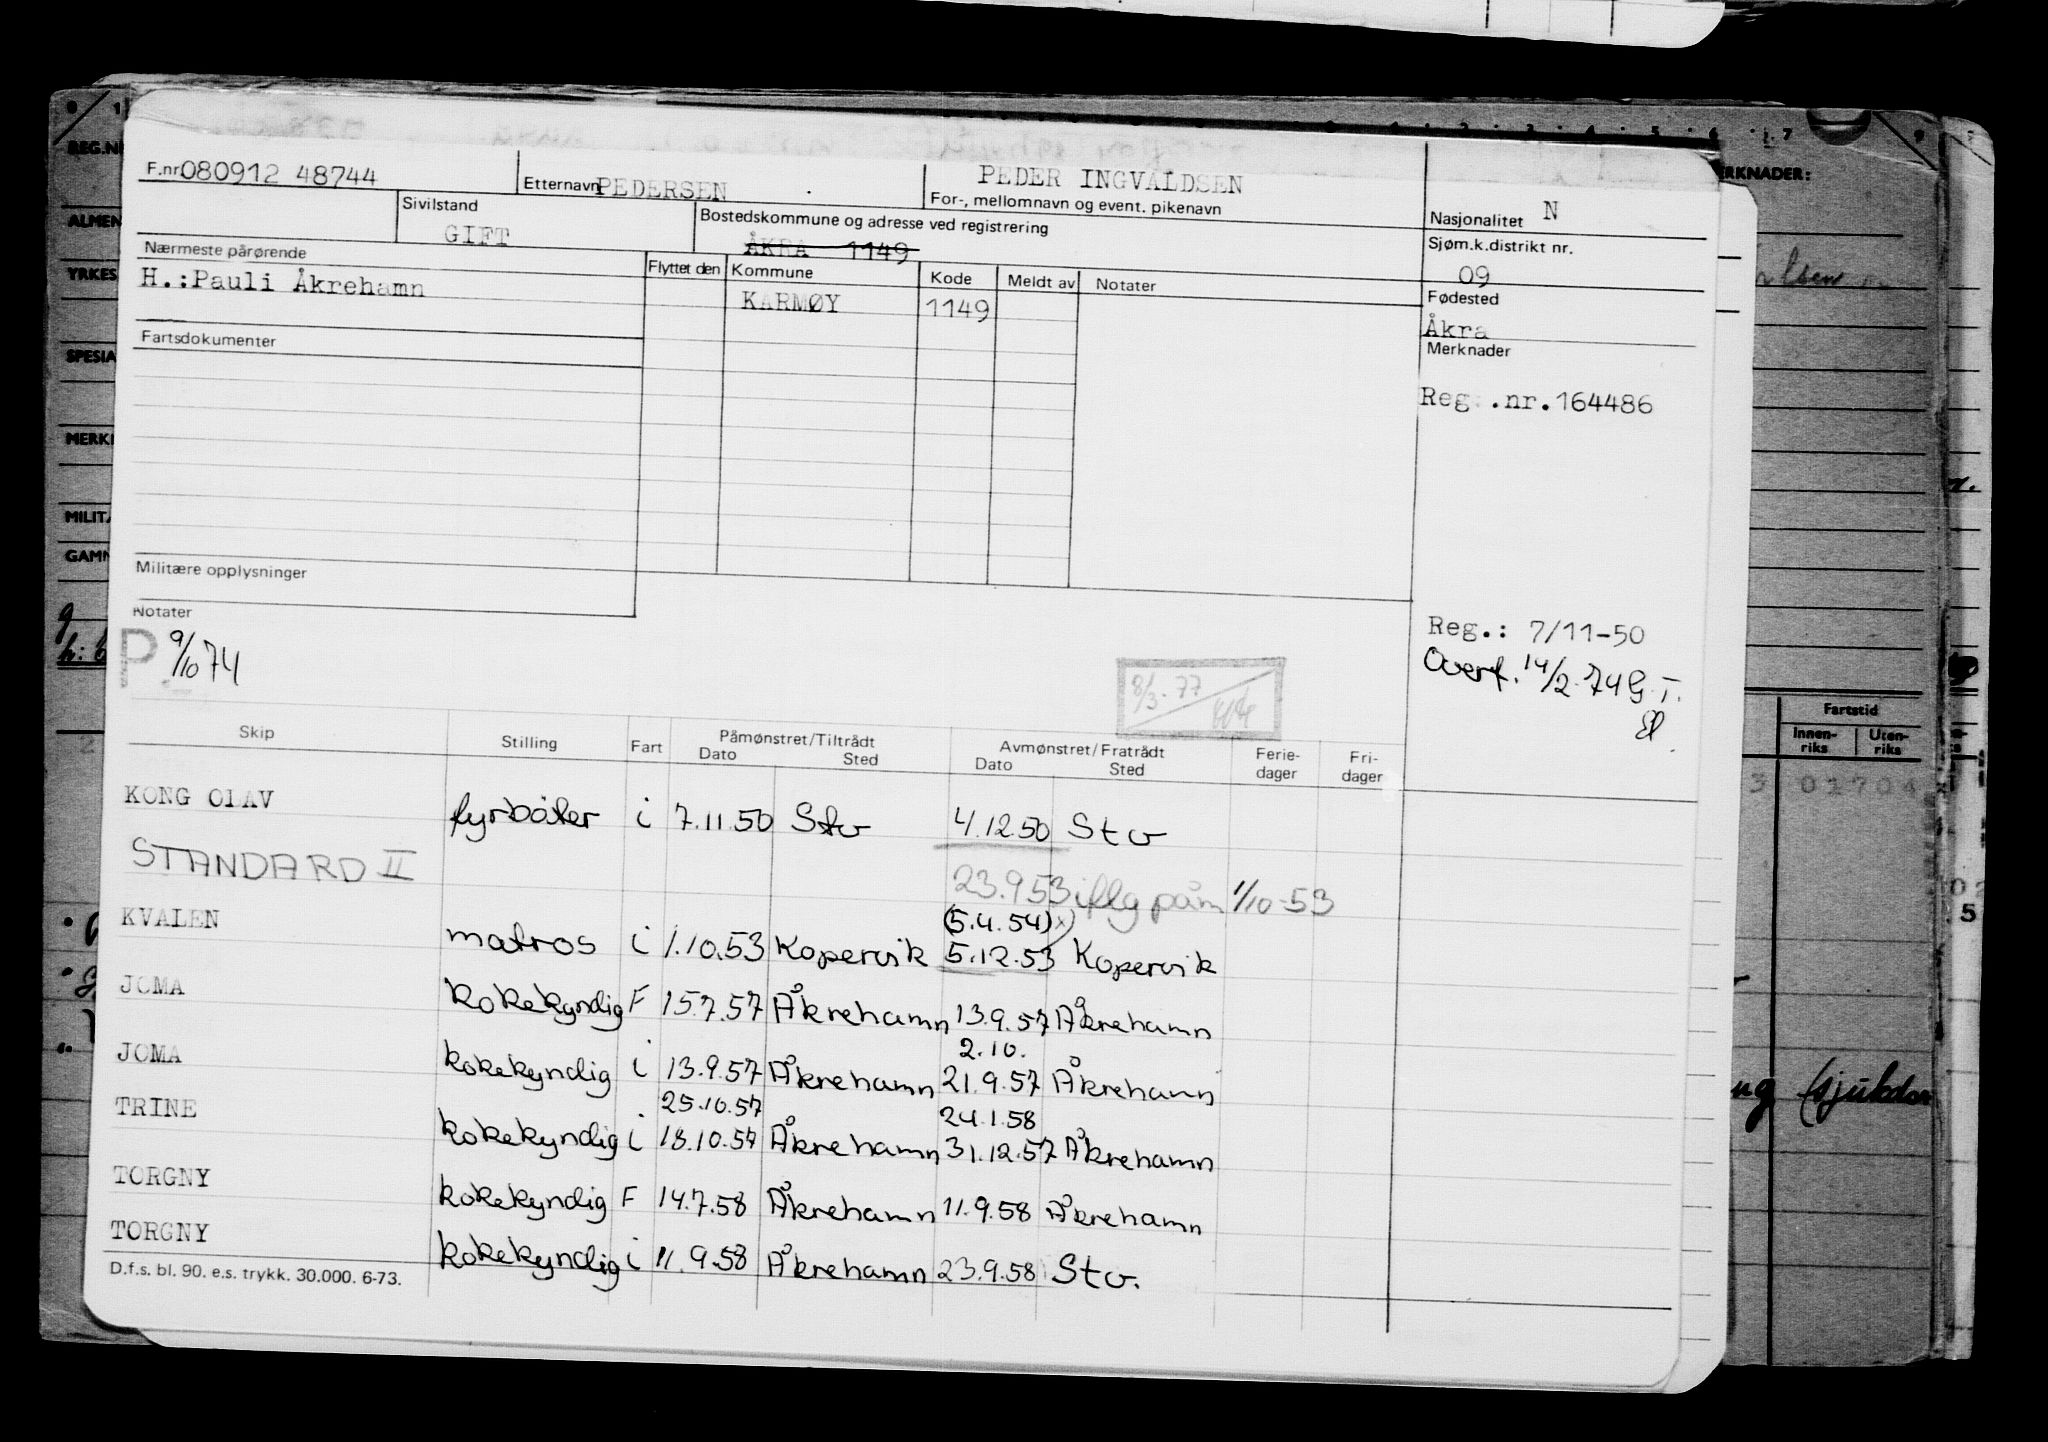 F.nr. 080912 48744
Etternavn PEDERSEN
PEDER INGVALDSEN
For-, mellomnavn og event. pikenavn
Nasjonalitet N
Sivilstand
GIFT
Bostedskommune og adresse ved registrering
ÅKRA 1149
Sjøm.k.distrikt nr.
09
Nærmeste pårørende
H.:Pauli Åkrehamn
Flyttet den Kommune Kode Meldt av Notater
KARMØY 1149
Fødested
Åkra
Fartsdokumenter
Merknader
Reg .nr.164486
Militære opplysninger
Notater
P 9/10 74
8/3.77
Reg.: 7/11-50
Overf. 14/2.74 G.T.
Skip Stilling Fart Påmønstret/Tiltrådt Avmønstret/Fratrådt Ferie-dager Fri-dager
Dato Sted Dato Sted
KONG OLAV fyrbøter i 7.11.50 Stv 4.12.50 Stv
STANDARD II 23.9.53 iflg påm 1/10-53
(5.4.54) x)
KVALEN matros i 1.10.53 Kopervik 5.12.53 Kopervik
JOMA kokekyndig F 15.7.57 Åkrehamn 13.9.57 Åkrehamn
2.10.
JOMA kokekyndig i 13.9.57 Åkrehamn 21.9.57 Åkrehamn
25.10.57 24.1.58
TRINE kokekyndig i 18.10.57 Åkrehamn 31.12.57 Åkrehamn
TORGNY kokekyndig F 14.7.58 Åkrehamn 11.9.58 Åkrehamn
TORGNY kokekyndig i 11.9.58 Åkrehamn 23.9.58 Stv.
D.f.s. bl. 90. e.s. trykk. 30.000. 6-73.
REG.N
ALMEN
YRKES
SPESIA
MERK
MILIT
GAMN
RKNADER:
Fartstid
Innen-riks Uten-riks
3 01704
ng (sjukdom